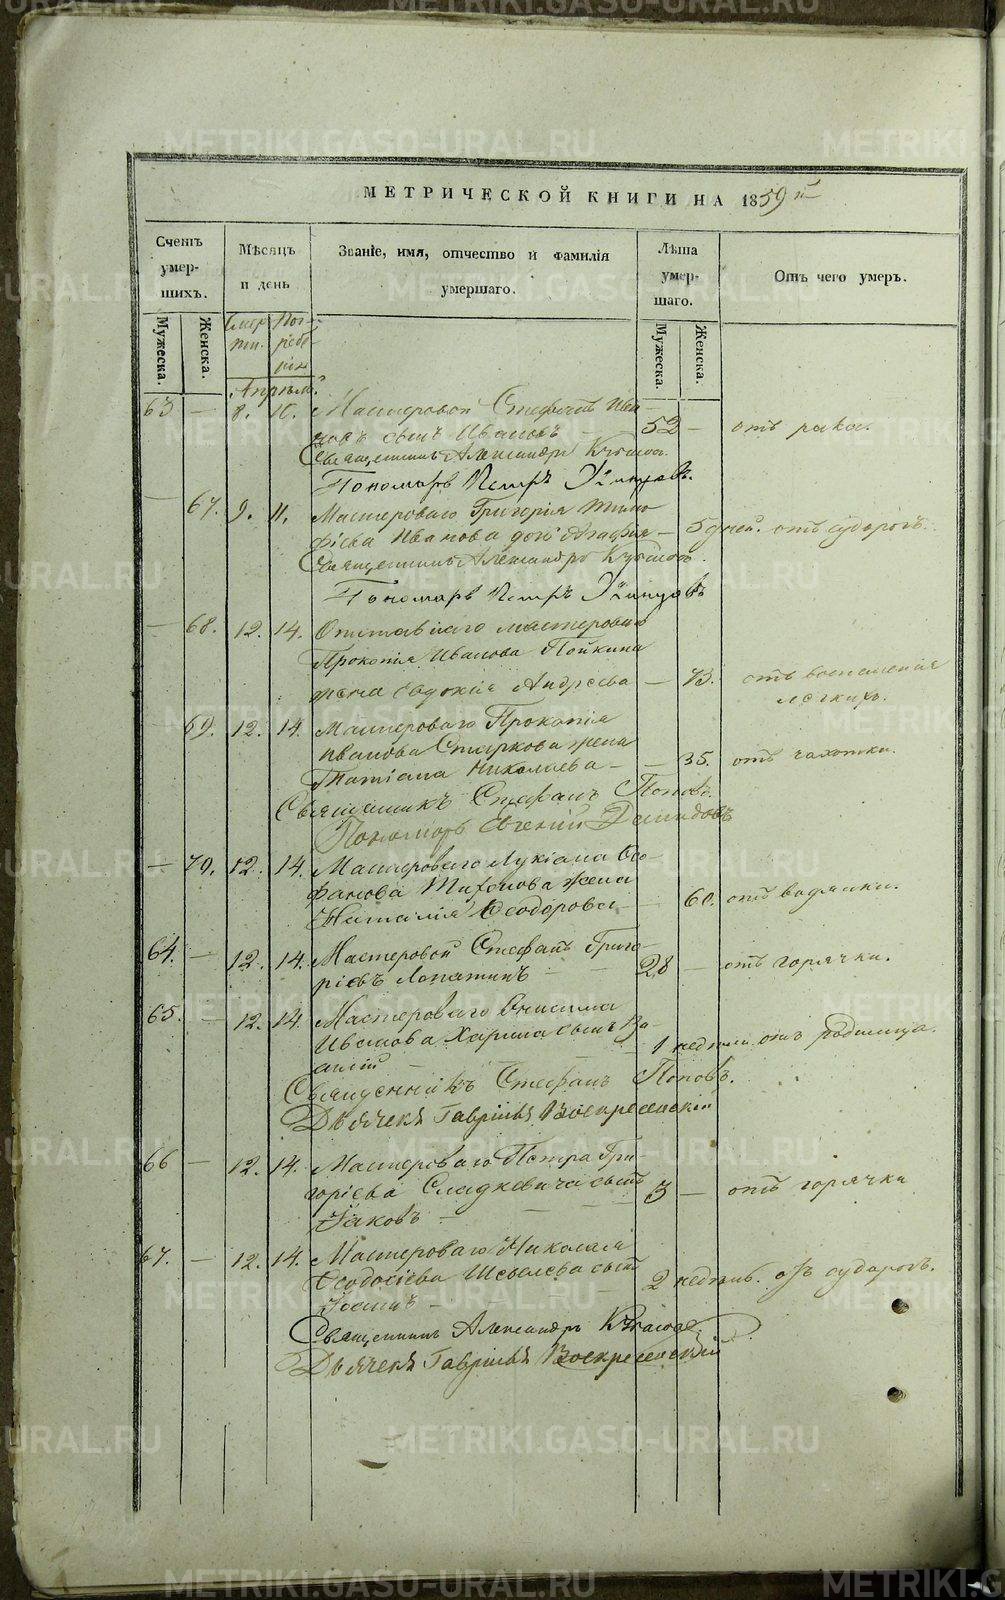 МЕТРИЧЕСКОЙ КНИГИ НА 1859й
Счетъ умер-шихъ.
Мѣсяцъ и день
Званіе, имя, отчество и фамилія умершаго.
Лѣта умер-шаго.
Отъ чего умеръ.
Мужеска.
Женска.
Смерти.
Погребенія
Мужеска.
Женска.
Апрѣль
63 — 8. 10. Мастеровой Стефанъ Ива-
новъ сынъ Ивановъ — 52 — отъ рака.
Священникъ Александръ
Пономарь Петръ
— 67. 9. 11. Мастероваго Григорія Тимо-
фіева Иванова дочь Агафія — 5 дней. отъ судорогъ.
Священникъ Александръ
Пономарь Петръ
— 68. 12. 14. Отставнаго мастероваго
Прокопія Иванова Пойкина
жена Евдокія Андреева — 73. отъ воспаленія
легкихъ.
— 69. 12. 14. Мастероваго Прокопія
Иванова Старкова жена
Татіана Николаева — — 35. отъ чахотки.
Священникъ Стефанъ Поповъ.
Пономарь Евгеній Демидовъ
— 70. 12. 14. Мастероваго Лукіана Ѳео-
фанова Тифонова жена
Наталія Ѳеодорова — 60. отъ водянки.
64. — 12. 14. Мастеровой Стефанъ Григо-
ріевъ Лопатинъ — — 28 — отъ горячки.
65. — 12. 14. Мастероваго Онисима
Иванова Харина сынъ Ва-
силій — 1 недѣли отъ родимца.
Священникъ Стефанъ Поповъ.
Дьячекъ Гавріилъ Воскресенскій
66 — 12. 14. Мастероваго Петра Гри-
горіева Сладкевича сынъ 3 — отъ горячки
Іаковъ —
67. — 12. 14. Мастероваго Николая
Ѳеодосіева Шевелева сынъ 2 недѣль. отъ судорогъ.
Іосифъ —
Священникъ Александръ
Дьячекъ Гавріилъ Воскресенскій
METRIKI.GASO-URAL.RU